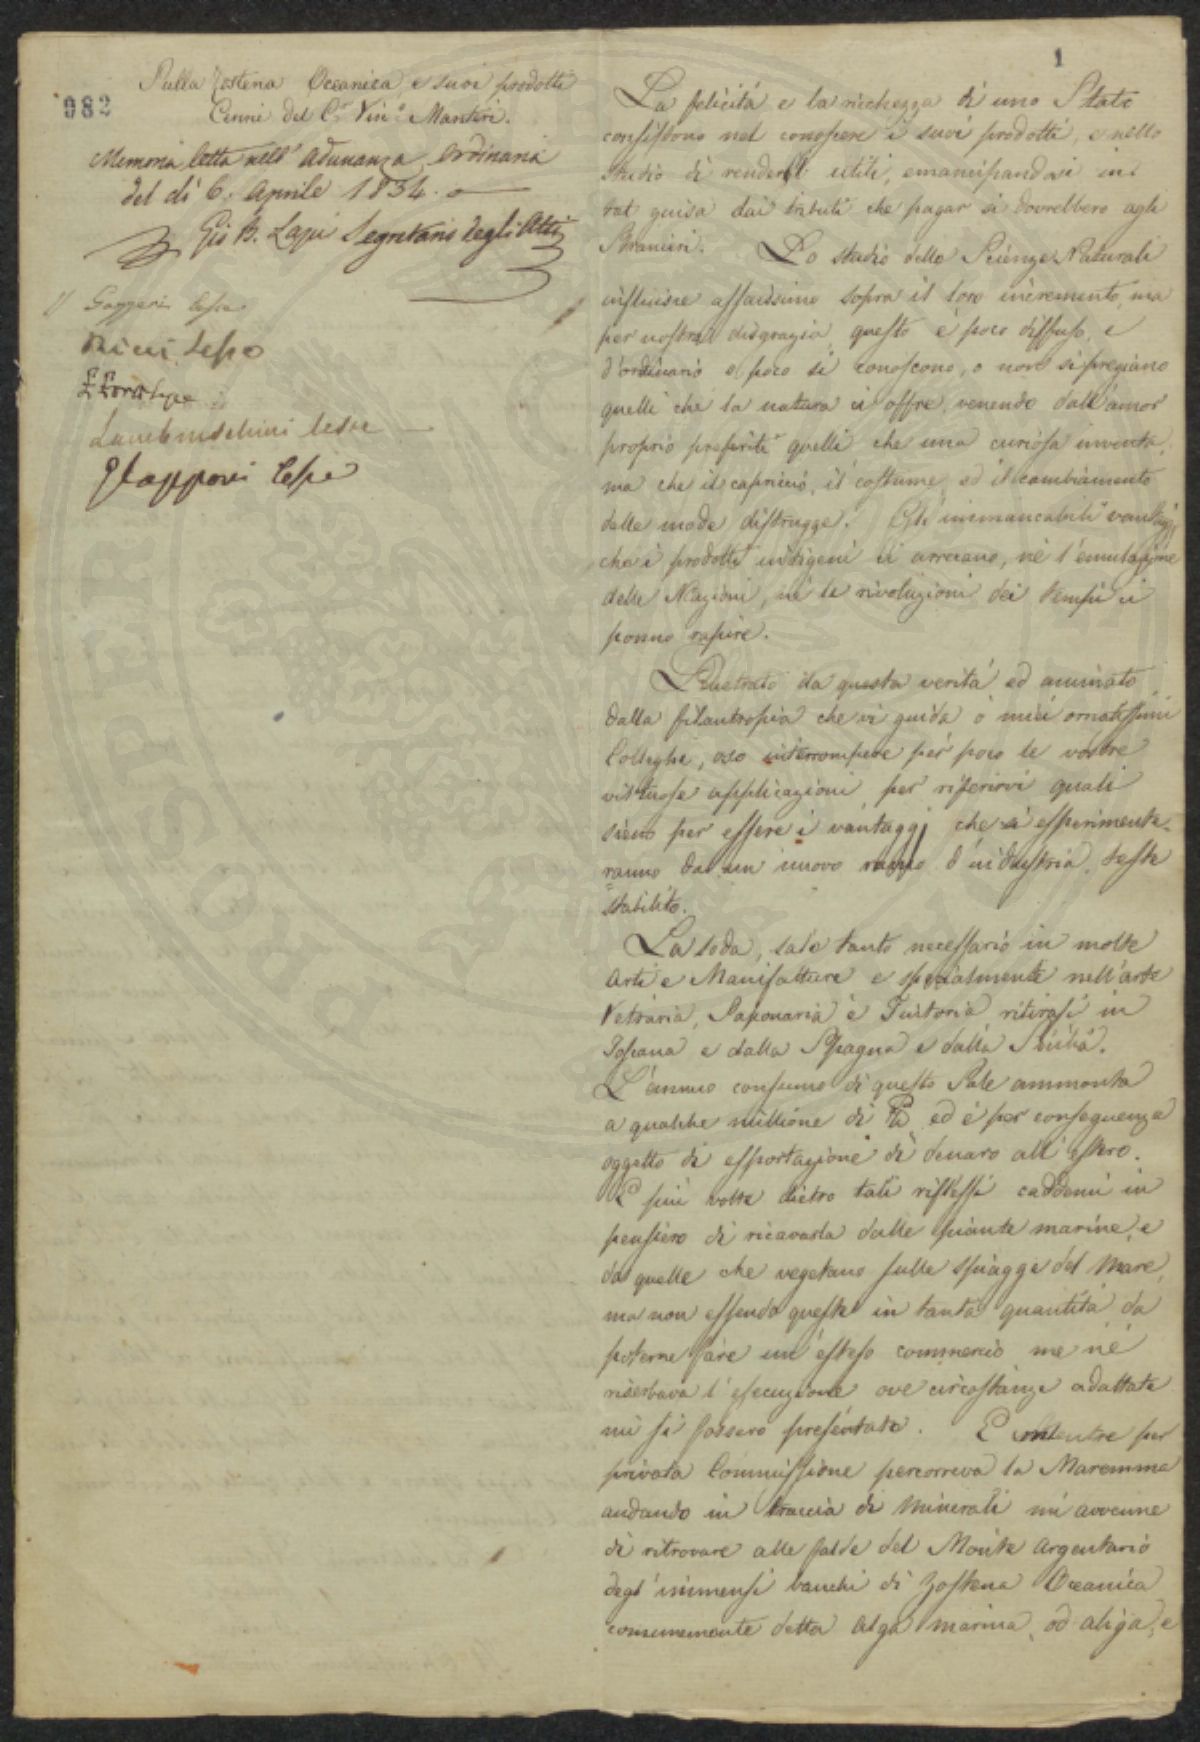 982
Sulla Zostera Oceanica, e suoi prodotti
Cenni del C.r Vin.o Manteri.
Memoria letta nell' Adunanza Ordinaria
del dì 6. Aprile 1834.
Gio B. Lapi Segretario degli Atti
Gazzeri
Ricci
Lambruschini
1
La felicità e la richezza di uno Stato
consistono nel conoscere i suoi prodotti, e nello
studio di renderli utili, emancipandosi in
tal guisa dai tributi che pagar si dovrebbero agli
Stranieri. Lo studio delle Scienze Naturali
influisce assaissimo sopra il loro incremento, ma
per nostra disgrazia questo è poco diffuso, e
d'ordinario o poco si conoscono, o non si pregiano
quelli che la natura ci offre, venendo dall'amor
proprio preferiti quelli che una curiosa inventa,
ma che il capriccio, il costume, ed il cambiamento
delle mode distrugge. Gli immancabili vantaggi
che i prodotti indigeni ci arrecano, nè l'emulazione
delle Nazioni, nè le rivoluzioni dei tempi ci
ponno rapire.
Penetrato da questa verità ed animato
dalla filantropia che vi guida o miei ornatissimi
Colleghi, oso interrompere per poco le vostre
virtuose applicazioni per riferirvi quali
sieno per essere i vantaggi che si esperimente-
ranno da un nuovo ramo d'industria teste
stabilito.
La soda, sale tanto necessario in molte
Arti e Manifatture e specialmente nell'arte
Vetraria, Saponaria e Tintoria ritirasi in
Toscana e dalla Spagna e dalla Sicilia.
L'annuo consumo di questo Sale ammonta
a qualche millione di ed è per conseguenza
oggetto di esportazione di denaro all'estero.
E più volte dietro tali riflessi caddemi in
pensiero di ricavarla dalle piante marine, e
da quelle che vegetano sulle spiagge del Mare,
ma non essendo queste in tanta quantità da
poterne fare un esteso commercio me nè
riserbava l'esecuzione ove circostanze adattate
mi si fossero presentate. E mentre per
privata Commissione percorreva la Maremma
andando in traccia di Minerali mi avvenne
di ritrovare alle falde del Monte Argentario
degl'immensi banchi di Zostera Oceanica
comunemente detta Alga marina, od aliga, e